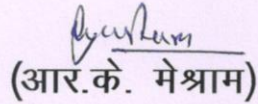 (आर.के. मेश्राम)